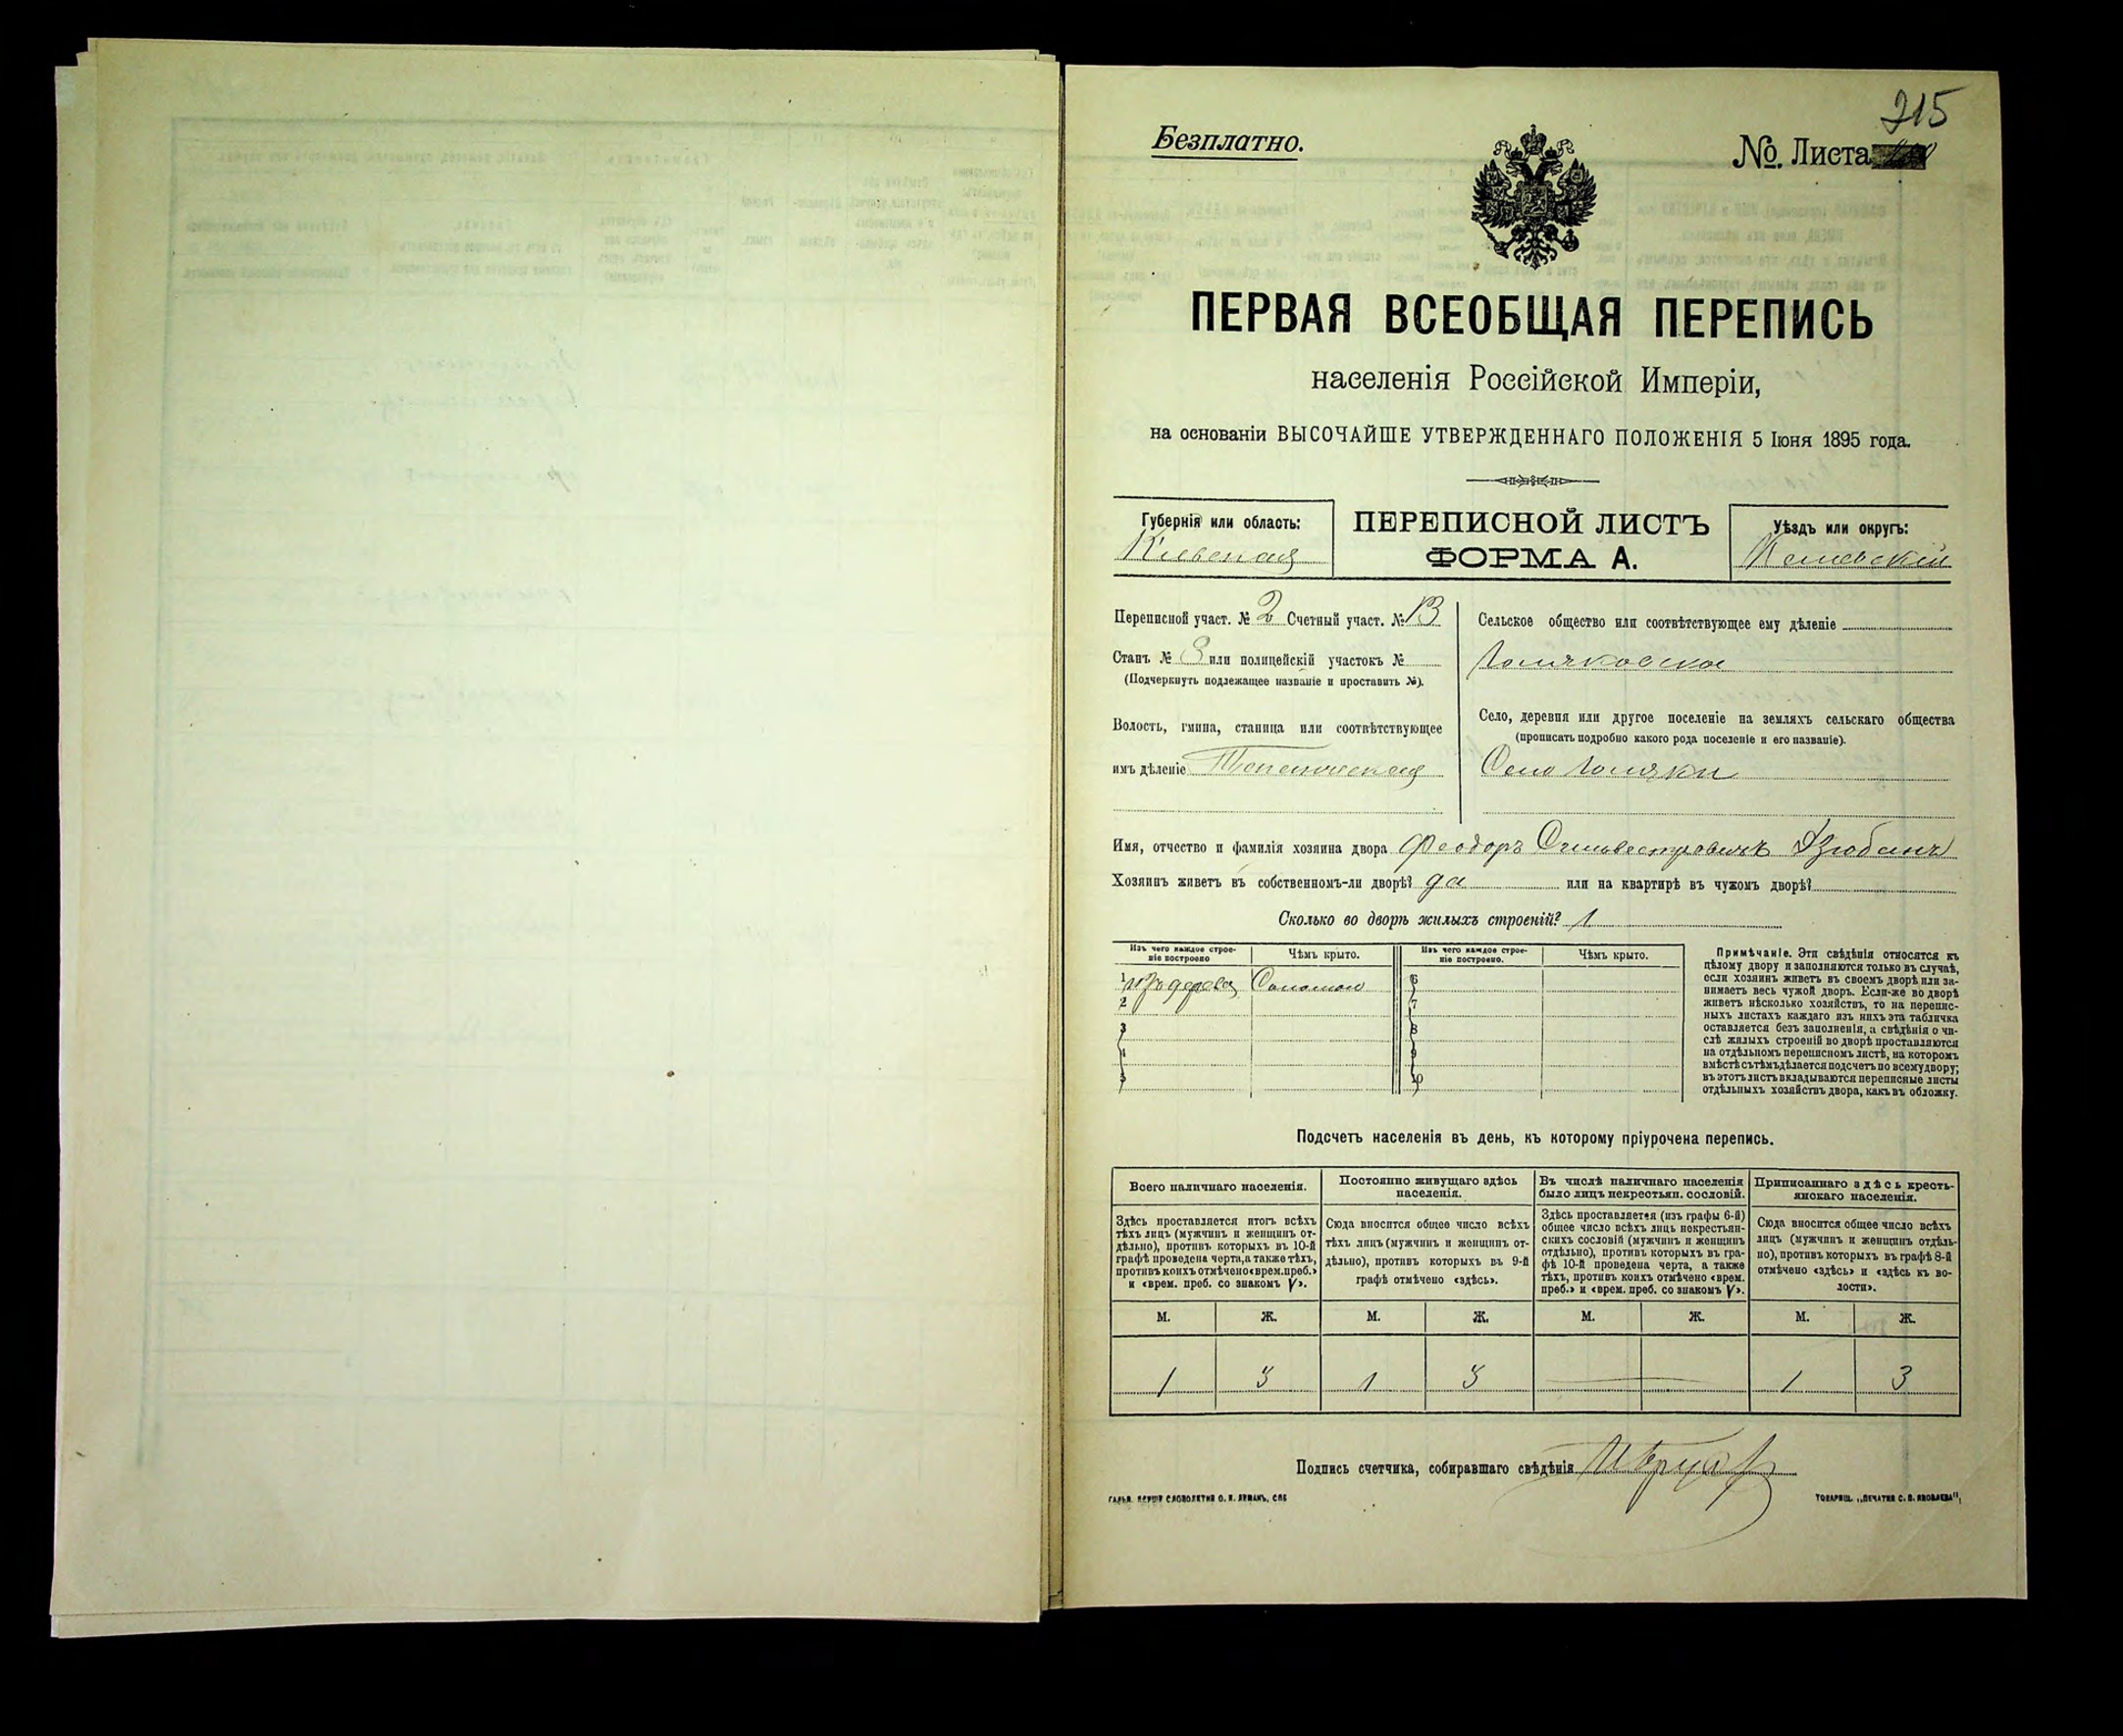 215
Безплатно.
№. Листа
ПЕРВАЯ ВСЕОБЩАЯ ПЕРЕПИСЬ
населенія Россійской Имперіи,
на основаніи ВЫСОЧАЙШЕ УТВЕРЖДЕННАГО ПОЛОЖЕНІЯ 5 Іюня 1895 года.
Губернія или область:
Кіевская
ПЕРЕПИСНОЙ ЛИСТЪ
ФОРМА А.
Уѣздъ или округъ:
Кіевскій
Переписной участ. № 2 Счетный участ. № 13
Станъ № 3 или полицейскій участокъ №
(Подчеркнуть подлежащее названіе и проставить №).
Волость, гмина, станица или соотвѣтствующее
имъ дѣленіе
Сельское общество или соотвѣтствующее ему дѣленіе
Село, деревня или другое поселеніе на земляхъ сельскаго общества
(прописать подробно какого рода поселеніе и его названіе).
Село
Имя, отчество и фамилія хозяина двора Феодоръ Сильвестровичъ Дзюбанъ
Хозяинъ живетъ въ собственномъ-ли дворѣ? да или на квартирѣ въ чужомъ дворѣ?
Сколько во дворѣ жилыхъ строеній? 1
Изъ чего каждое строе-
ніе построено
Чѣмъ крыто.
Изъ чего каждое строе-
ніе построено.
Чѣмъ крыто.
1 изъ дерева Соломою 6
2 7
3 8
4 9
5 10
Примѣчаніе. Эти свѣдѣнія относятся къ
цѣлому двору и заполняются только въ случаѣ,
если хозяинъ живетъ въ своемъ дворѣ или за-
нимаетъ весь чужой дворъ. Если-же во дворѣ
живетъ нѣсколько хозяйствъ, то на перепис-
ныхъ листахъ каждаго изъ нихъ эта табличка
оставляется безъ заполненія, а свѣдѣнія о чи-
слѣ жилыхъ строеній во дворѣ проставляются
на отдѣльномъ переписномъ листѣ, на которомъ
вмѣстѣ съ тѣмъ дѣлается подсчетъ по всему двору;
въ этотъ листъ вкладываются переписные листы
отдѣльныхъ хозяйствъ двора, какъ въ обложку.
Подсчетъ населенія въ день, къ которому пріурочена перепись.
Всего наличнаго населенія.
Здѣсь проставляется итогъ всѣхъ
тѣхъ лицъ (мужчинъ и женщинъ от-
дѣльно), противъ которыхъ въ 10-й
графѣ проведена черта, а также тѣхъ,
противъ коихъ отмѣчено «врем. преб.»
и «врем. преб. со знакомъ V».
Постоянно живущаго здѣсь
населенія.
Сюда вносится общее число всѣхъ
тѣхъ лицъ (мужчинъ и женщинъ от-
дѣльно), противъ которыхъ въ 9-й
графѣ отмѣчено «здѣсь».
Въ числѣ наличнаго населенія
было лицъ некрестьян. сословій.
Здѣсь проставляется (изъ графы 6-й)
общее число всѣхъ лицъ некрестьян-
скихъ сословій (мужчинъ и женщинъ
отдѣльно), противъ которыхъ въ гра-
фѣ 10-й проведена черта, а также
тѣхъ, противъ коихъ отмѣчено «врем.
преб.» и «врем. преб. со знакомъ V».
Приписаннаго здѣсь кресть-
янскаго населенія.
Сюда вносится общее число всѣхъ
лицъ (мужчинъ и женщинъ отдѣль-
но), противъ которыхъ въ графѣ 8-й
отмѣчено «здѣсь» и «здѣсь къ во-
лости».
М. Ж. М. Ж. М. Ж. М. Ж.
1 3 1 3 1 3
Подпись счетчика, собиравшаго свѣдѣнія